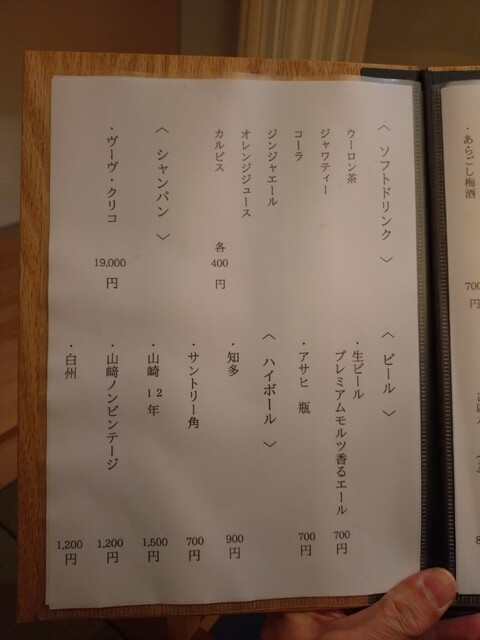 ・あらごし梅酒
700
円
〈 ソフトドリンク 〉
ウーロン茶
ジャワティー
コーラ
ジンジャエール
オレンジジュース
カルピス
各
400
円
〈 シャンパン 〉
・ヴーヴ・クリコ
19,000
円
〈 ビール 〉
・生ビール
プレミアムモルツ香るエール
700
円
・アサヒ 瓶
700
円
〈 ハイボール 〉
・知多
900
円
・サントリー角
700
円
・山崎 12年
1,500
円
・山崎ノンビンテージ
1,200
円
・白州
1,200
円